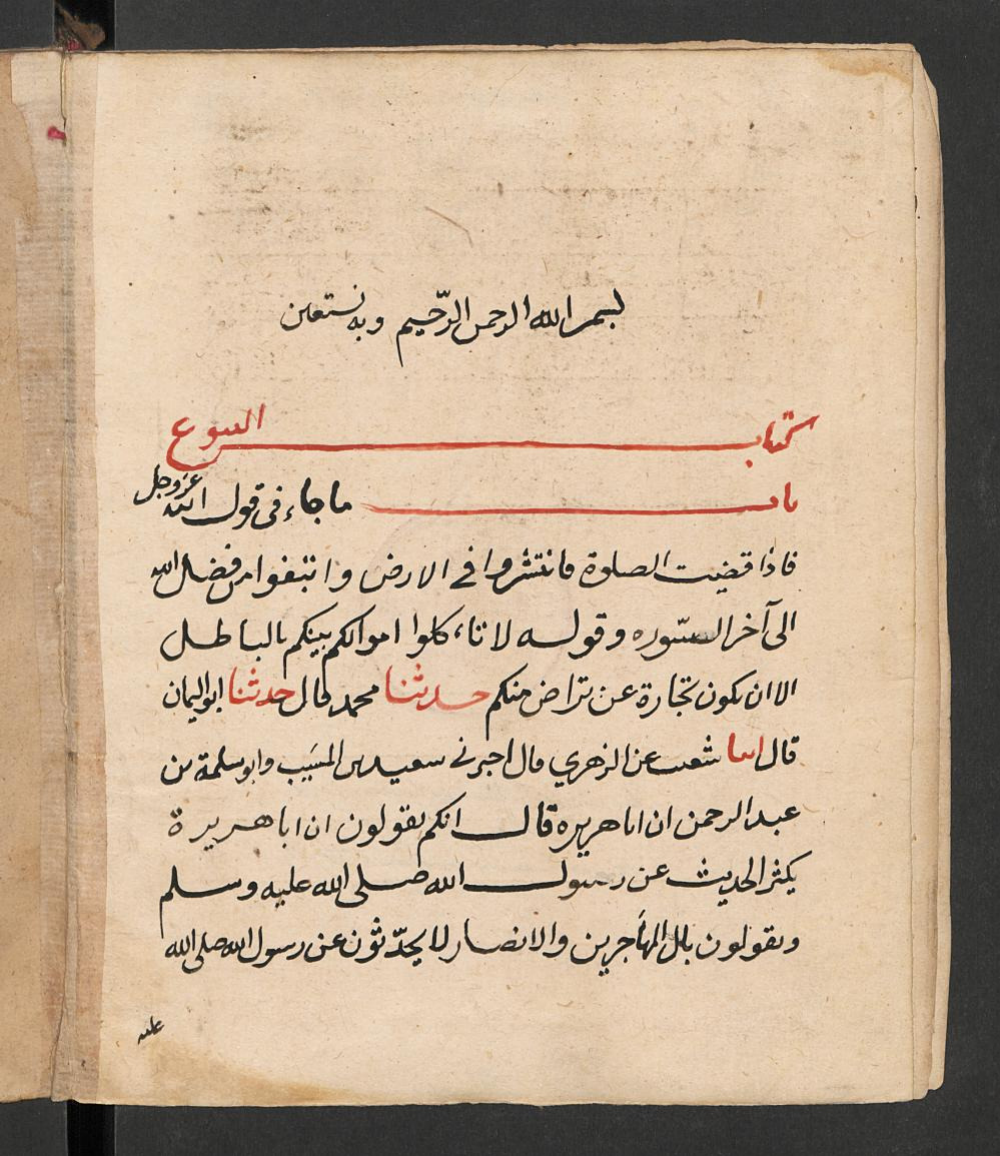 بسم الله الرحمن الرّحيم وبه نستعين
كتاب البيوع
باب ما جاء فى قول الله عز وجل
فاذا قضيت الصلوة فانتشروا في الارض وابتغوا من فضل الله
الى آخر السّوره وقوله لا تاءكلوا اموالكم بينكم بالباطل
الا ان تكون تجارة عن تراض منكم حدثنا محمد قال حدثنا ابو اليمان
قال انبا شعيب عن الزهري قال اخبرني سعيد بن المسَيب وابو سلمة بن
عبد الرحمن ان ابا هريره قال انكم تقولون ان ابا هريرة
يكثر الحديث عن رسول الله صلى الله عليه وسلم
وتقولون بال المهاَجرين والانصار لا يحدّثون عن رسول الله صلى الله
عليه